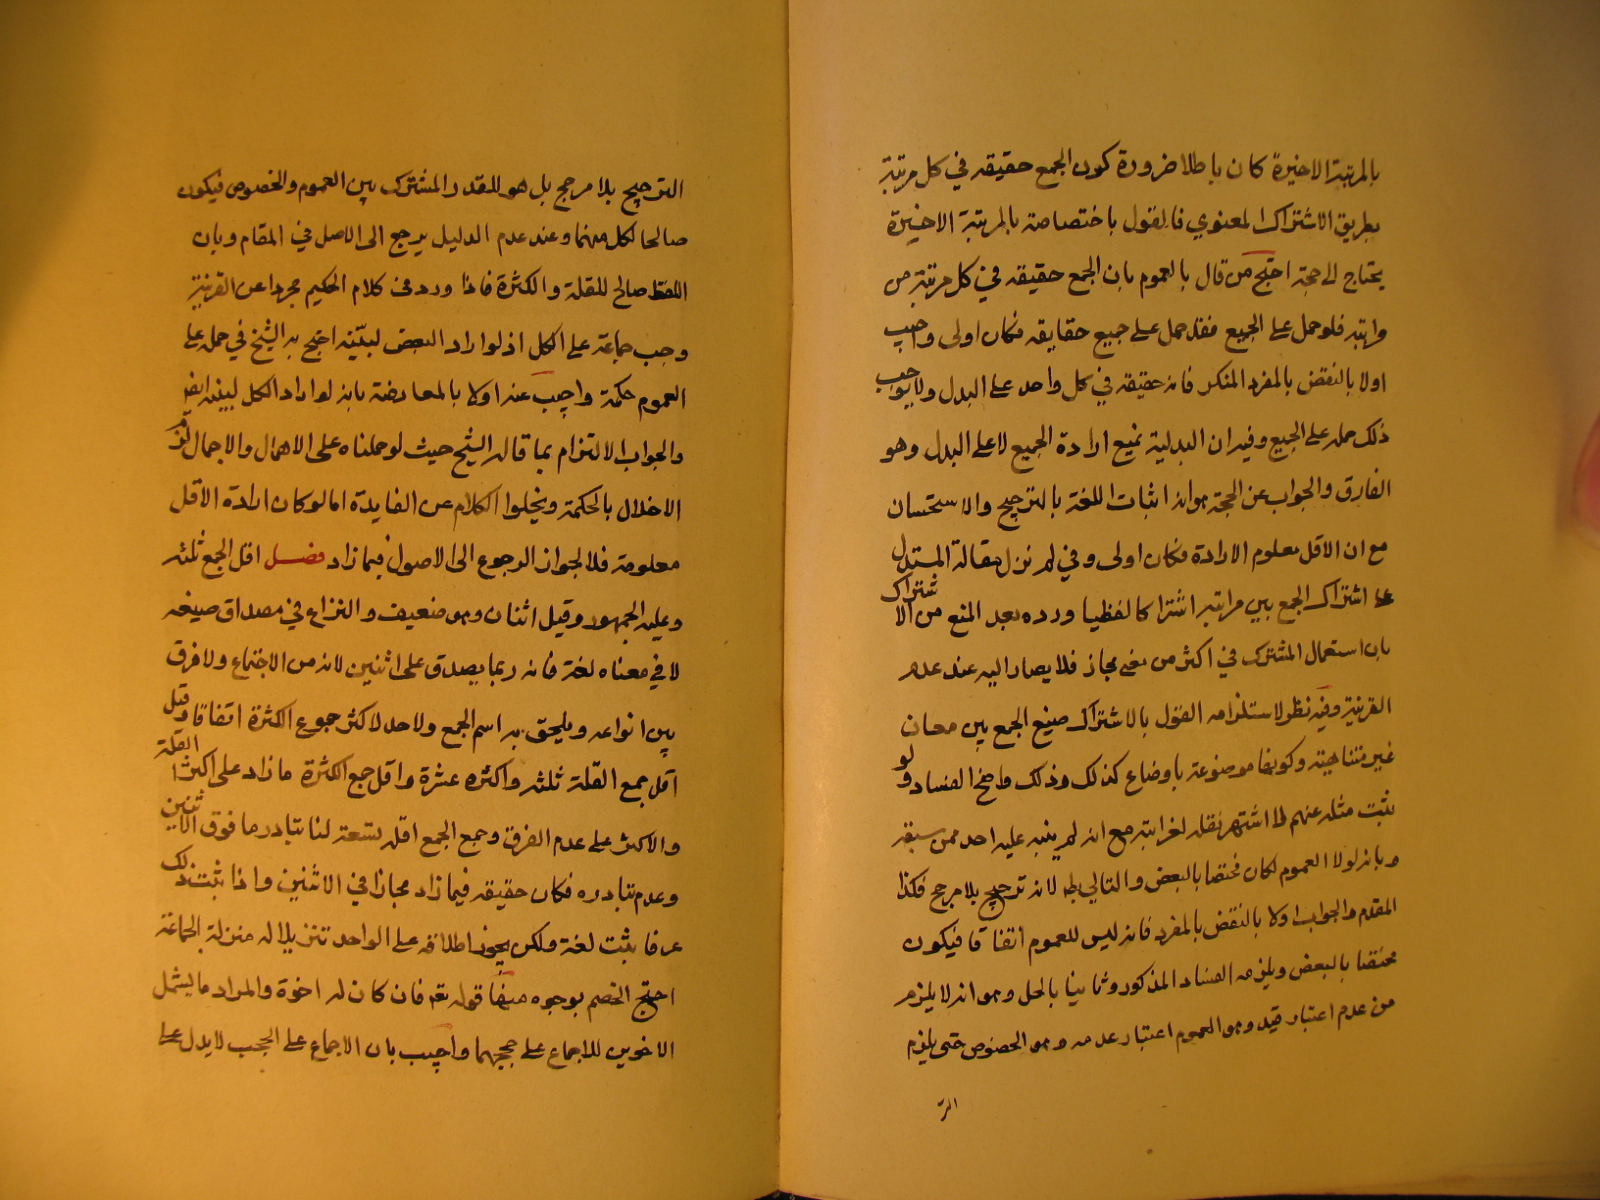 بالمرتبة الاخيرة كان باطلا ضرورة كون الجمع حقيقه في كل مرتبة
بطريق الاشتراك المعنوي فالقول باختصاصه بالمرتبة الاخيرة
يحتاج الى حجة احتج من قال بالعموم بان الجمع حقيقه في كل مرتبة من
مراتبه فلو حمل على الجميع فقد حمل على جميع حقايقه فكان اولى واجيب
اولا بالنقض بالمفرد المنكر فانه حقيقه في كل واحد على البدل ولا يوجب
ذلك حمله على الجميع وفيه ان البدلية تمنع ارادة الجميع لا على البدل وهو
الفارق والجواب عن الحجة هو انه اثبات اللغة بالترجيح والاستحسان
مع ان الاقل معلوم الارادة فكان اولى وفي لم نزل مقالة المستدل
على اشتراك الجمع بين مراتبه اشتراكا لفظيا ورده بعد المنع من الاشتراك
بان استعمال المشترك في اكثر من معنى مجاز فلا يصار اليه عند عدم
القرينة وفيه نظر لاستلزامه القول بالاشتراك صيغ الجمع بين معان
غير متناهية وكونها موضوعة باوضاع كذلك وذلك واضح الفساد ولو
ثبت مثله عنهم لما اشتهر نقله لغرابته مع انه لم ينبه عليه احد ممن سبقه
وبانه لولا العموم لكان مختصا بالبعض والتالي بط لانه ترجيح بلا مرجح فكذا
المقدم والجواب اولا بالنقض بالمفرد فانه ليس للعموم اتفاقا فيكون
مختصا بالبعض ويلزمه الفساد المذكور وثانيا بالحل وهو انه لا يلزم
من عدم اعتبار قيد وهو العموم اعتبار عدمه وهو الخصوص حتى يلزم
التر
الترجيح بلا مرجح بل هو للقدر المشترك بين العموم والخصوص فيكون
صالحا لكل منهما وعند عدم الدليل يرجع الى الاصل في المقام وبان
اللفظ صالح للقلة والكثرة فاذا ورد في كلام الحكيم مجردا عن القرينة
وجب حمله على الكل اذ لو اراد البعض لبينه احتج به الشيخ في حمله على
العموم حكمة واجيب عنه اولا بالمعارضة بانه لو اراد الكل لبينه ايضا
والجواب الالتزام بما قاله الشيخ حيث لو حملناه على الاهمال والاجمال لزم
الاخلال بالحكمة ويخلوا الكلام عن الفايدة اما لو كان ارادة الاقل
معلومة فلا لجواز الرجوع الى الاصول فيما زاد فصل اقل الجمع ثلثه
وعليه الجمهور وقيل اثنان وهو ضعيف والنزاع في مصداق صيغه
لا في معناه لغة فانه ربما يصدق على اثنين لانه من الاجتماع ولا فرق
بين انواعه ويلحق به اسم الجمع ولا حد لاكثر جموع الكثرة اتفاقا وقيل
اقل جمع القلة ثلثه واكثره عشرة واقل جمع الكثرة ما زاد على اكثر القلة
والاكثر على عدم الفرق وجمع الجمع اقله تسعة لنا تبادر ما فوق الاثنين
وعدم تبادره فكان حقيقه فيما زاد مجازا في الاثنين واذا ثبت ذلك
عرفا ثبت لغة ولكن يجوز اطلاقه على الواحد تنزيلا له منزلة الجماعة
احتج الخصم بوجوه منها قوله تعه فان كان له اخوة والمراد ما يشمل
الاخوين للاجماع على حجبهما واجيب بان الاجماع على الحجب لا يدل على